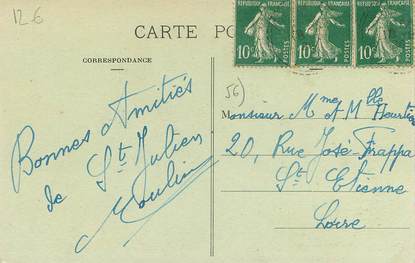 12€
CARTE PO
REPUBLIQUE FRANÇAISE REPUBLIQUE FRANÇAISE REPUBLIQUE FRANÇAISE
10c POSTES 10c POSTES 10c POSTES
CORRESPONDANCE
56)
Bonnes Amitiés
de St Julien
Moulin
Monsieur Mme et Mlle
20, Rue José-Frappa
St Etienne
Loire